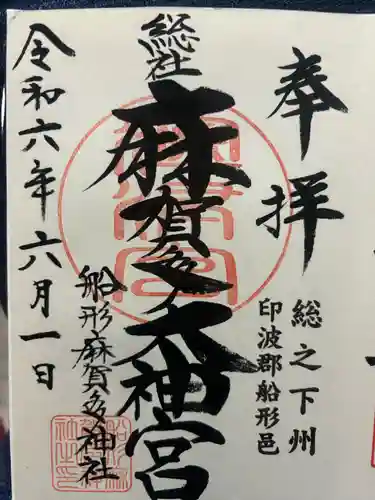 奉拝
総之下州
印波郡船形邑
総社
麻賀多大神宮
船形麻賀多神社
令和六年六月一日